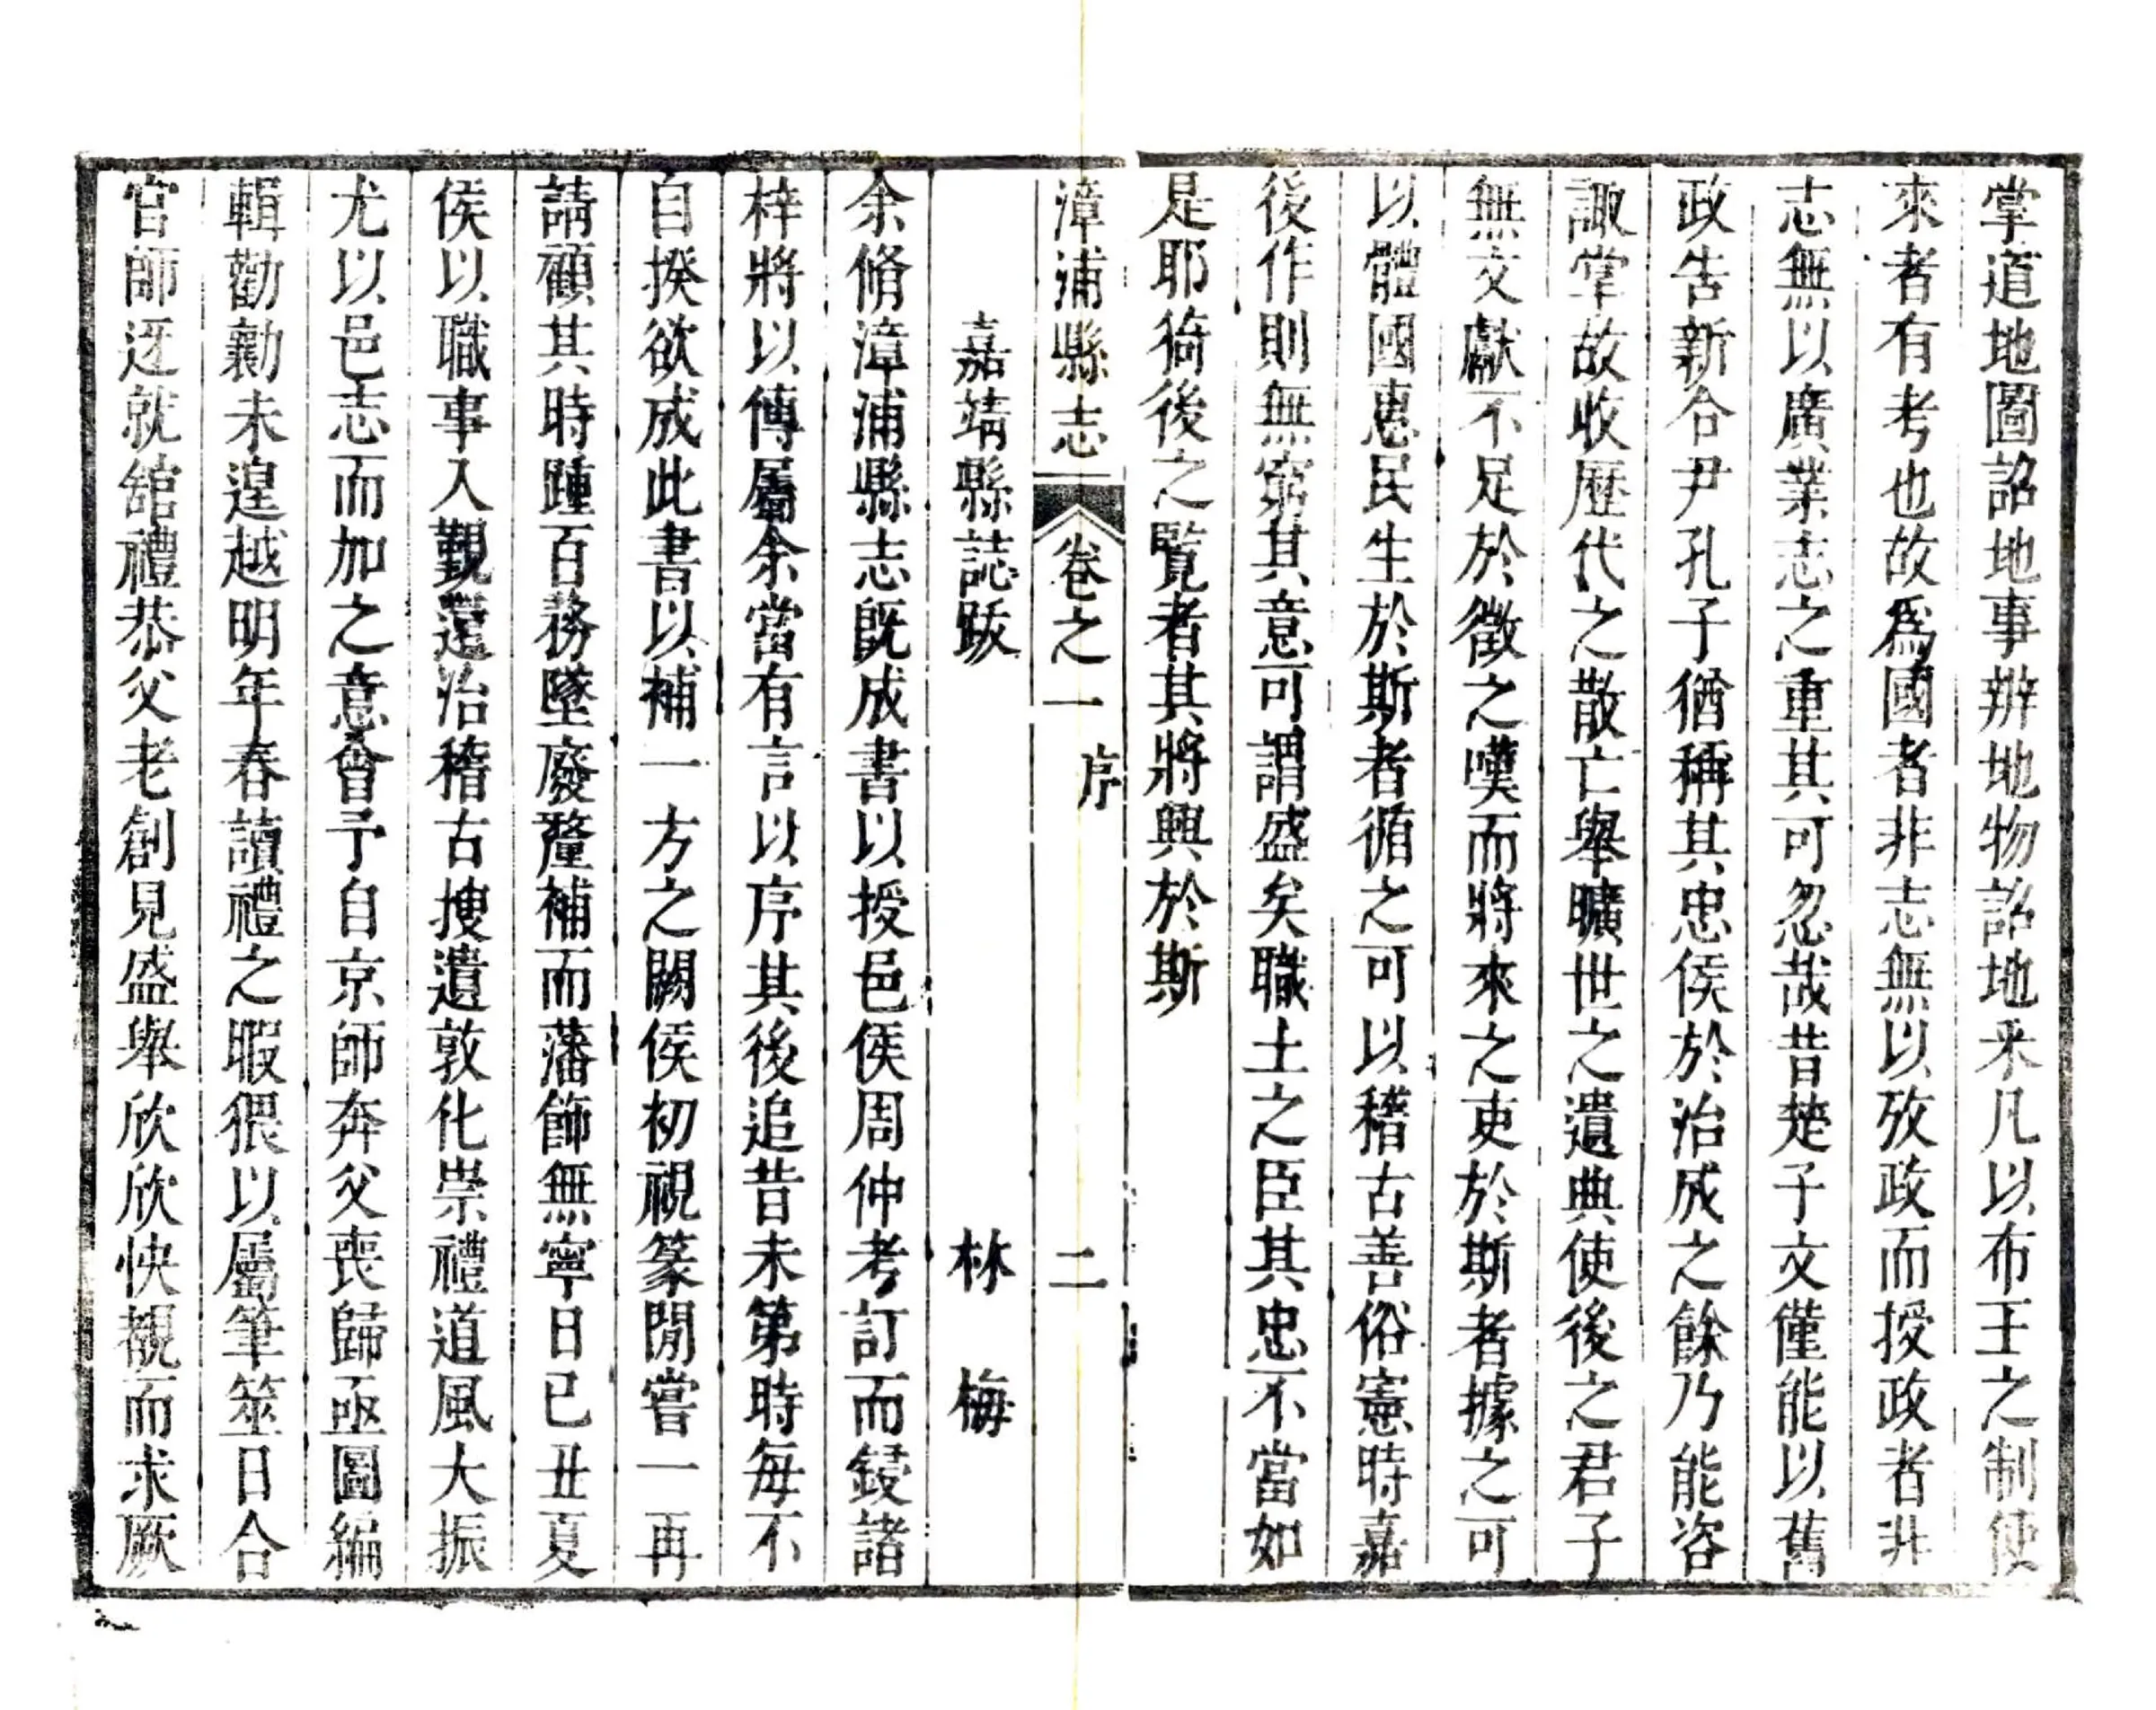 掌道地圖詔地事辨地物詔地釆凡以布王之制使
來者有考也故爲國者非志無以攷政而授政者非
志無以廣業志之重其可忽哉昔楚子文僅能以舊
政告新令尹孔子猶稱其忠侯於治成之餘乃能咨
諏掌故收歷代之散亡舉曠世之遺典使後之君子
無文獻不足於徵之嘆而將來之吏於斯者據之可
以體國惠民生於斯者循之可以稽古善俗憲時嘉
後作則無窮其意可謂盛矣職土之臣其忠不當如
是耶猗後之覽者其將興於斯
漳浦縣志 卷之一 序 二
嘉靖縣誌跋 林 梅
余脩漳浦縣志旣成書以授邑侯周仲考訂而鋟諸
梓將以傳屬余當有言以序其後追昔未第時每不
自揆欲成此書以補一方之闕侯初視篆閒嘗一再
請顧其時踵百務墜廢釐補而藩飾無寧日已丑夏
侯以職事入覲還治稽古搜遺敦化崇禮道風大振
尤以邑志而加之意會予自京師奔父喪歸亟圖編
輯勸勷未遑越明年春讀禮之暇猥以屬筆筮日合
官師迓就舘禮恭父老創見盛舉欣欣快覩而求厥